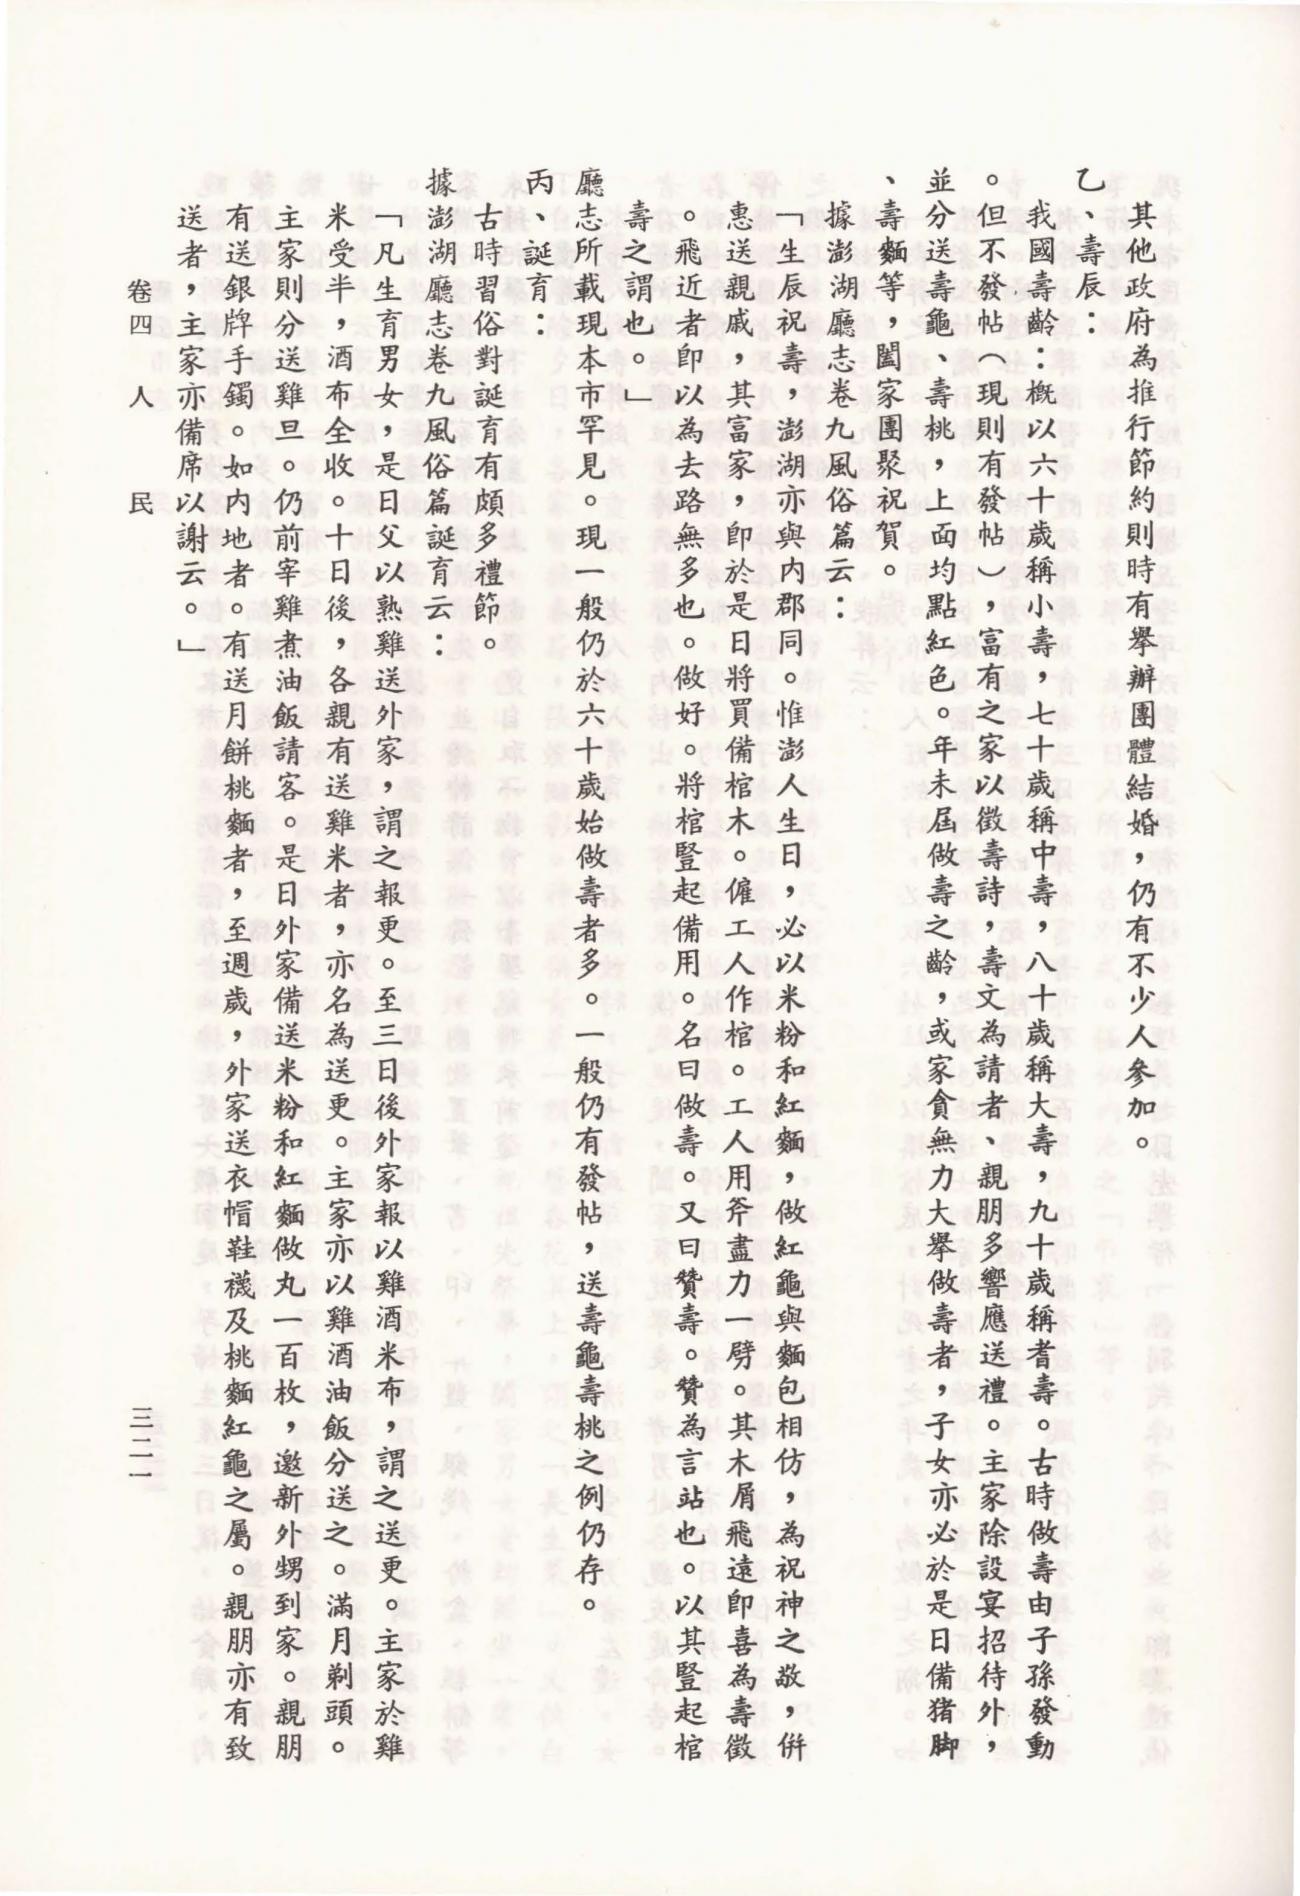 其他政府為推行節約則時有舉辦團體結婚，仍有不少人參加。
乙、壽辰：
我國壽齡：概以六十歲稱小壽，七十歲稱中壽，八十歲稱大壽，九十歲稱耆壽。古時做壽由子孫發動
。但不發帖（現則有發帖），富有之家以徵壽詩，壽文為請者、親朋多響應送禮。主家除設宴招待外，
並分送壽龜、壽桃，上面均點紅色。年未屆做壽之齡，或家貪無力大舉做壽者，子女亦必於是日備猪脚
、壽麵等，闔家團聚祝賀。
據澎湖廳志卷九風俗篇云：
「生辰祝壽，澎湖亦與內郡同。惟澎人生日，必以米粉和紅麵，做紅龜與麵包相仿，為祝神之敬，倂
惠送親戚，其富家，卽於是日將買備棺木。僱工人作棺。工人用斧盡力一劈。其木屑飛遠卽喜為壽徵
。飛近者卽以為去路無多也。做好。將棺豎起備用。名曰做壽。又曰贊壽。贊為言站也。以其豎起棺
壽之謂也。」
廳志所載現本市罕見。現一般仍於六十歲始做壽者多。一般仍有發帖，送壽龜壽桃之例仍存。
丙、誕育：
古時習俗對誕育有頗多禮節。
據澎湖廳志卷九風俗篇誕育云：
「凡生育男女，是日父以熟雞送外家，謂之報更。至三日後外家報以雞酒米布，謂之送更。主家於雞
米受半，酒布全收。十日後，各親有送雞米者，亦名為送更。主家亦以雞酒油飯分送之。滿月剃頭。
主家則分送雞旦。仍前宰雞煮油飯請客。是日外家備送米粉和紅麵做丸一百枚，邀新外甥到家。親朋
有送銀牌手鐲。如內地者。有送月餅桃麵者，至週歲，外家送衣帽鞋襪及桃麵紅龜之屬。親朋亦有致
送者，主家亦備席以謝云。」
卷四　人　民
三二一